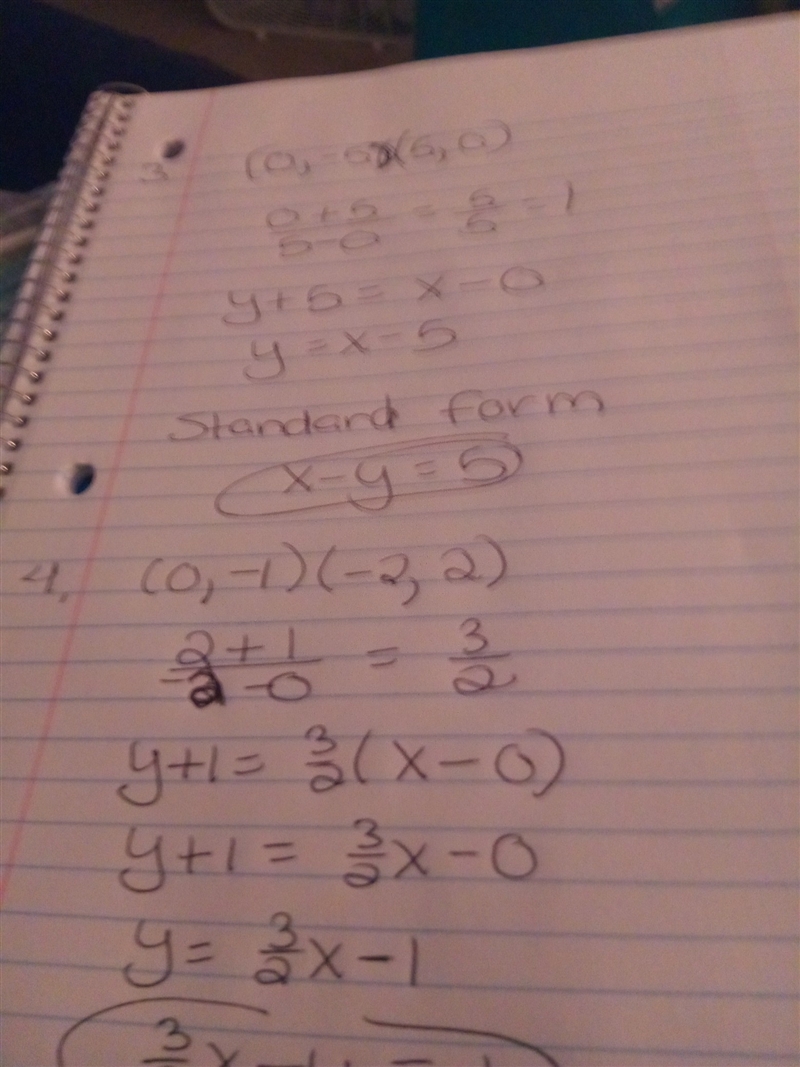 3 (0, -5)(5, 0)
0+5/5-0 = 5/5 = 1
y+5 = x-0
y = x-5
Standard form
x-y = 5
4. (0, -1)(-2, 2)
2+1/-2-0 = 3/2
y+1 = 3/2(x-0)
y+1 = 3/2x-0
y = 3/2x-1